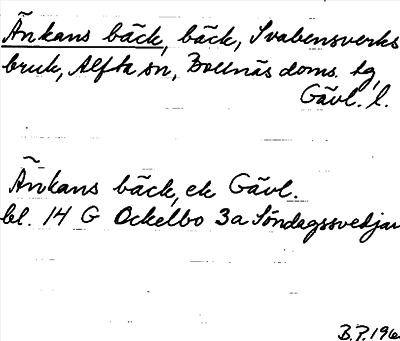 Änkans bäck, bäck, Svabensverks
bruk, Alfta sn, Bollnäs doms. hg,
Gävl. l.
Änkans bäck, ek Gävl.
bl. 14 G Ockelbo 3a Söndagssvedjan
B.P. 196